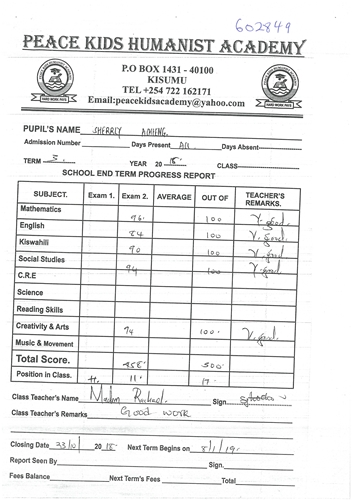 602849
PEACE KIDS HUMANIST ACADEMY
P.O BOX 1431 - 40100
KISUMU
TEL +254 722 162171
Email:peacekidsacademy@yahoo.com
HARD WORK PAYS HARD WORK PAYS
PUPIL'S NAME SHERRLY ADHENG.
Admission Number Days Present All Days Absent
TERM 3. YEAR 2018. CLASS
SCHOOL END TERM PROGRESS REPORT
SUBJECT. Exam 1. Exam 2. AVERAGE OUT OF TEACHER'S REMARKS.
Mathematics 96. 100 V. good.
English 84 100 V. good.
Kiswahili 90 100 V. good
Social Studies 94 100 V. good.
C.R.E
Science
Reading Skills
Creativity & Arts 94 100. V. good.
Music & Movement
Total Score. 458. 500.
Position in Class. 11. 17.
Class Teacher's Name Madam Rachael. Sign
Class Teacher's Remarks Good work
Closing Date 2018. Next Term Begins on 8/1/19.
Report Seen By Sign.
Fees Balance Next Term's Fees Total